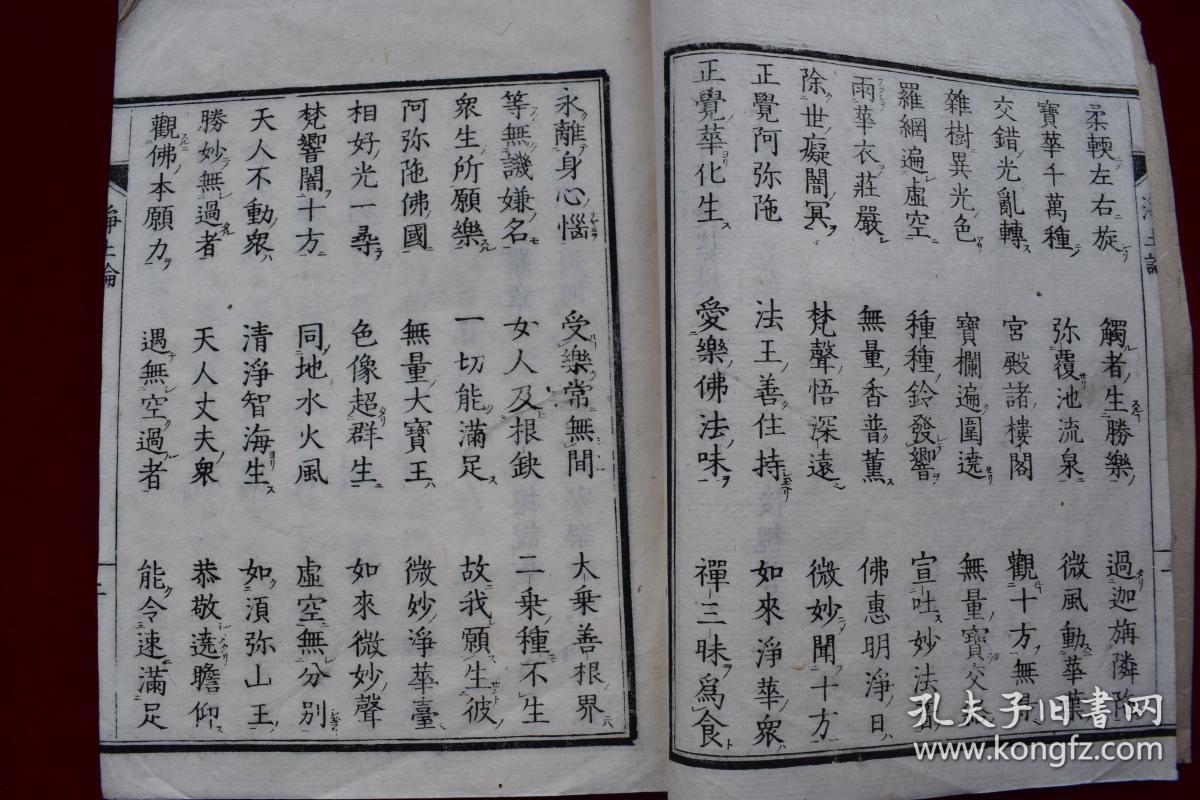 柔輭左右旋 觸者生勝樂 過迦旃隣
寶華千萬種 弥覆池流泉 微風動華
交錯光亂轉 宮殿諸樓閣 觀十方無
雜樹異光色 寶欄遍圍遶 無量寶交
羅網遍虛空 種種鈴發響 宣吐妙法
雨華衣莊嚴 無量香普薰 佛惠明淨日
除世癡闇冥 梵聲悟深遠 微妙聞十方
正覺阿弥陁 法王善住持 如來淨華衆
正覺華化生 愛樂佛法味 禪三昧爲食
永離身心惱 受樂常無間 大乗善根界
等無譏嫌名 女人及根缺 二乗種不生
衆生所願樂 一切能滿足 故我願生彼
阿弥陁佛國 無量大寶王 微妙淨華臺
相好光一尋 色像超群生 如來微妙聲
梵響聞十方 同地水火風 虛空無分別
天人不動衆 清淨智海生 如湏弥山王
勝妙無過者 天人丈夫衆 恭敬遶瞻仰
觀佛本願力 遇無空過者 能令速滿足
淨土論
孔夫子旧書网
www.kongfz.com